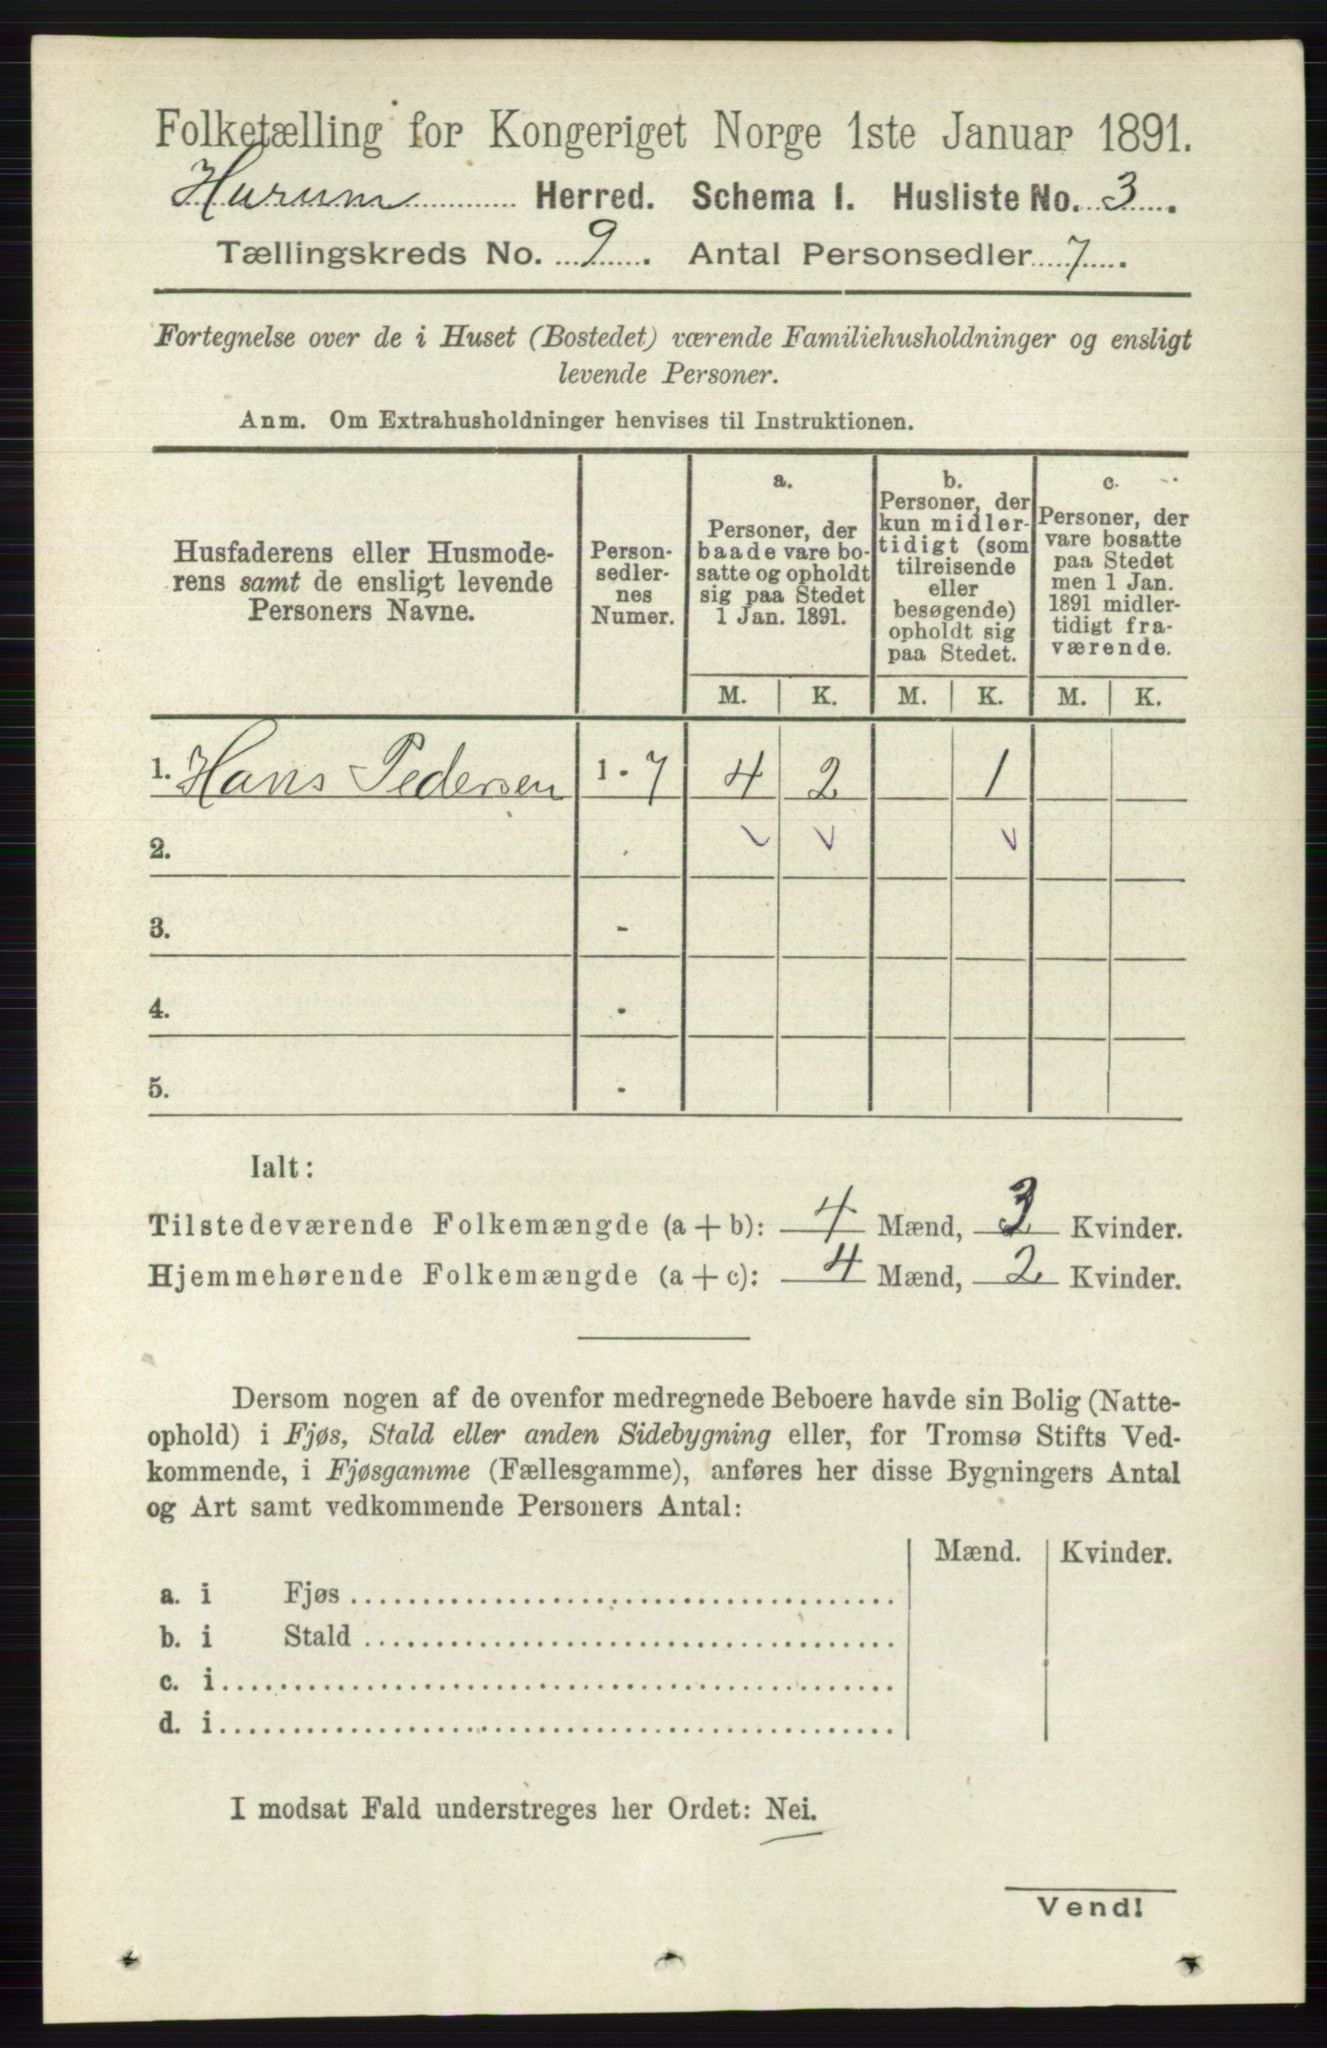 Folketælling for Kongeriget Norge 1ste Januar 1891.
Hurum Herred. Schema I. Husliste No. 3.
Tællingskreds No. 9. Antal Personsedler 7.
Fortegnelse over de i Huset (Bostedet) værende Familiehusholdninger og ensligt
levende Personer.
Anm. Om Extrahusholdninger henvises til Instruktionen.
Husfaderens eller Husmode-
rens samt de ensligt levende
Personers Navne.
Person-
sedler-
nes
Numer.
a.
Personer, der
baade vare bo-
satte og opholdt
sig paa Stedet
1 Jan. 1891.
b.
Personer, der
kun midler-
tidigt (som
tilreisende
eller
besøgende)
opholdt sig
paa Stedet.
c.
Personer, der
vare bosatte
paa Stedet
men 1 Jan.
1891 midler-
tidigt fra-
værende.
M. K. M. K. M. K.
1. Hans Pedersen 1 - 7 4 2 1
2.
3. -
4. -
5. -
Ialt:
Tilstedeværende Folkemængde (a + b): 4 Mænd, 3 Kvinder.
Hjemmehørende Folkemængde (a + c): 4 Mænd, 2 Kvinder.
Dersom nogen af de ovenfor medregnede Beboere havde sin Bolig (Natte-
ophold) i Fjøs, Stald eller anden Sidebygning eller, for Tromsø Stifts Ved-
kommende, i Fjøsgamme (Fællesgamme), anføres her disse Bygningers Antal
og Art samt vedkommende Personers Antal:
Mænd. Kvinder.
a. i Fjøs
b. i Stald
c. i
d. i
I modsat Fald understreges her Ordet: Nei.
Vend!